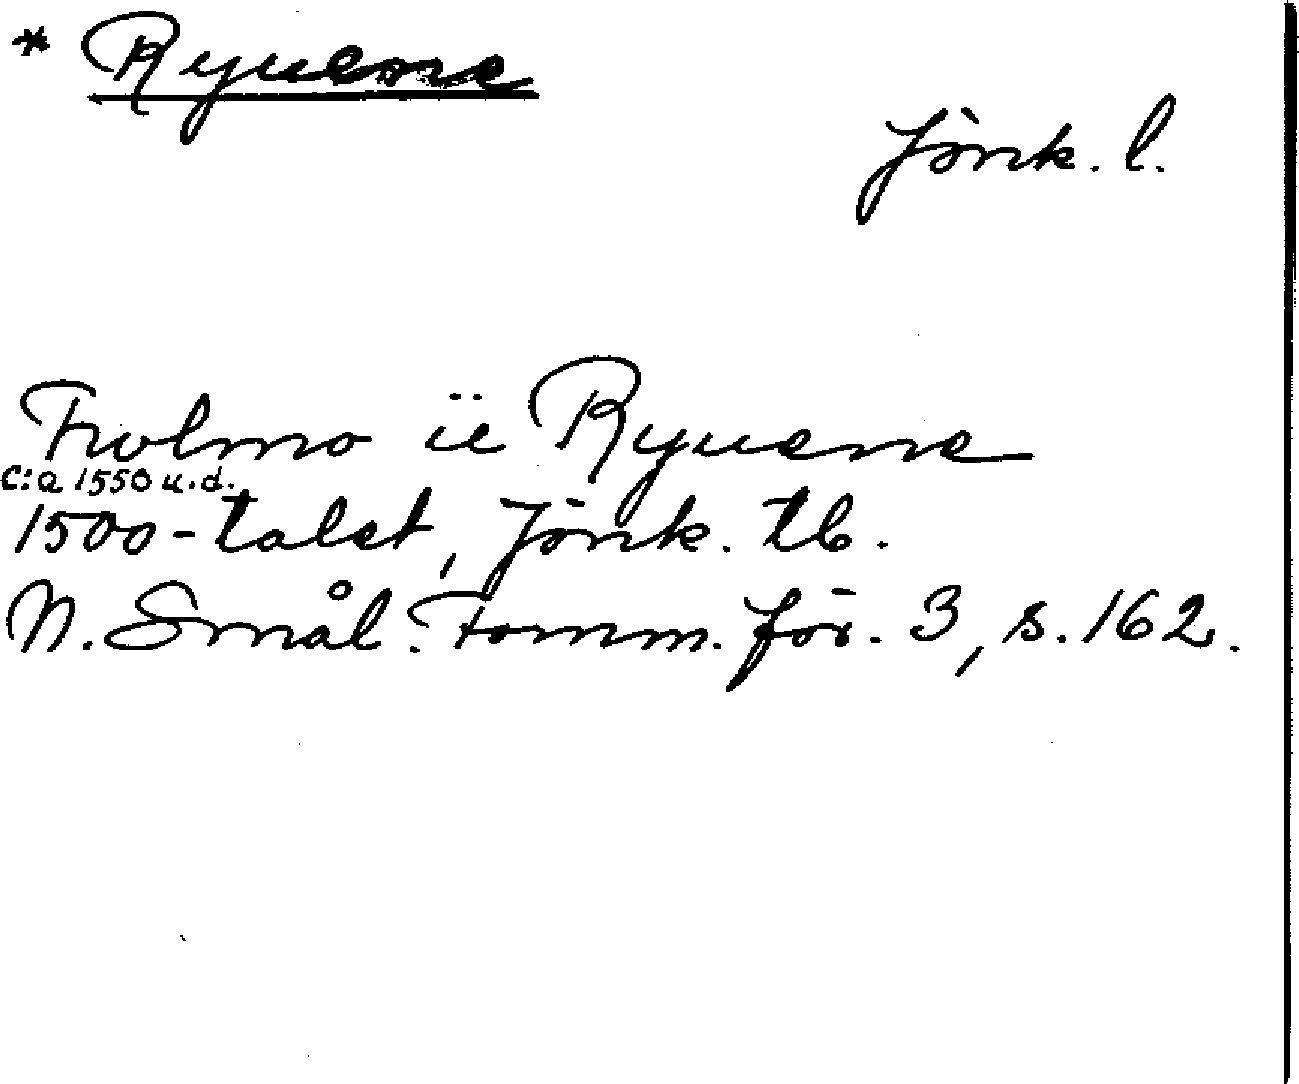 * Ryuene
Jönk. l.
Trolmo ie Ryuene
C:a 1550 u.d.
1500-talet, Jönk. tb.
N. Smål. Fornm. för. 3, s. 162.